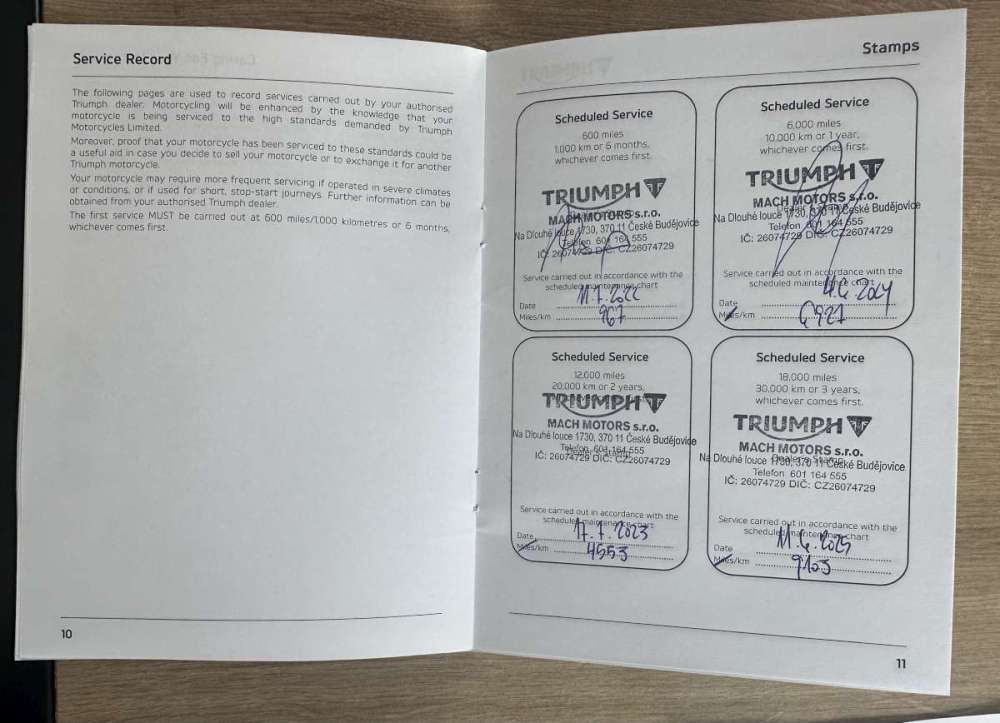 Service Record
The following pages are used to record services carried out by your authorised
Triumph dealer. Motorcycling will be enhanced by the knowledge that your
motorcycle is being serviced to the high standards demanded by Triumph
Motorcycles Limited.
Moreover, proof that your motorcycle has been serviced to these standards could be
a useful aid in case you decide to sell your motorcycle or to exchange it for another
Triumph motorcycle.
Your motorcycle may require more frequent servicing if operated in severe climates
or conditions, or if used for short, stop-start journeys. Further information can be
obtained from your authorised Triumph dealer.
The first service MUST be carried out at 600 miles/1000 kilometres or 6 months,
whichever comes first.
10
Stamps
Scheduled Service
600 miles
1,000 km or 6 months,
whichever comes first.
TRIUMPH
MACH MOTORS s.r.o.
Na Dlouhé louce 1730, 370 11 České Budějovice
Telefon 601 164 555
IČ: 26074729 DIČ: CZ26074729
Service carried out in accordance with the
scheduled maintenance chart
Date 11.7.2022
Miles/km 967
Scheduled Service
6,000 miles
10,000 km or 1 year,
whichever comes first.
TRIUMPH
MACH MOTORS s.r.o.
Dealer's Stamp
Na Dlouhé louce 1730, 370 11 České Budějovice
Telefon 601 164 555
IČ: 26074729 DIČ: CZ26074729
Service carried out in accordance with the
scheduled maintenance chart
Date 4.6.2024
Miles/km 6927
Scheduled Service
12,000 miles
20,000 km or 2 years,
TRIUMPH
MACH MOTORS s.r.o.
Na Dlouhé louce 1730, 370 11 České Budějovice
Telefon 601 164 555
Dealer's Stamp
IČ: 26074729 DIČ: CZ26074729
Service carried out in accordance with the
scheduled maintenance chart
Date 17.7.2023
Miles/km 4553
Scheduled Service
18,000 miles
30,000 km or 3 years,
whichever comes first.
TRIUMPH
MACH MOTORS s.r.o.
Dealer's Stamp
Na Dlouhé louce 1730, 370 11 České Budějovice
Telefon 601 164 555
IČ: 26074729 DIČ: CZ26074729
Service carried out in accordance with the
scheduled maintenance chart
Date 11.6.2025
Miles/km 9103
11